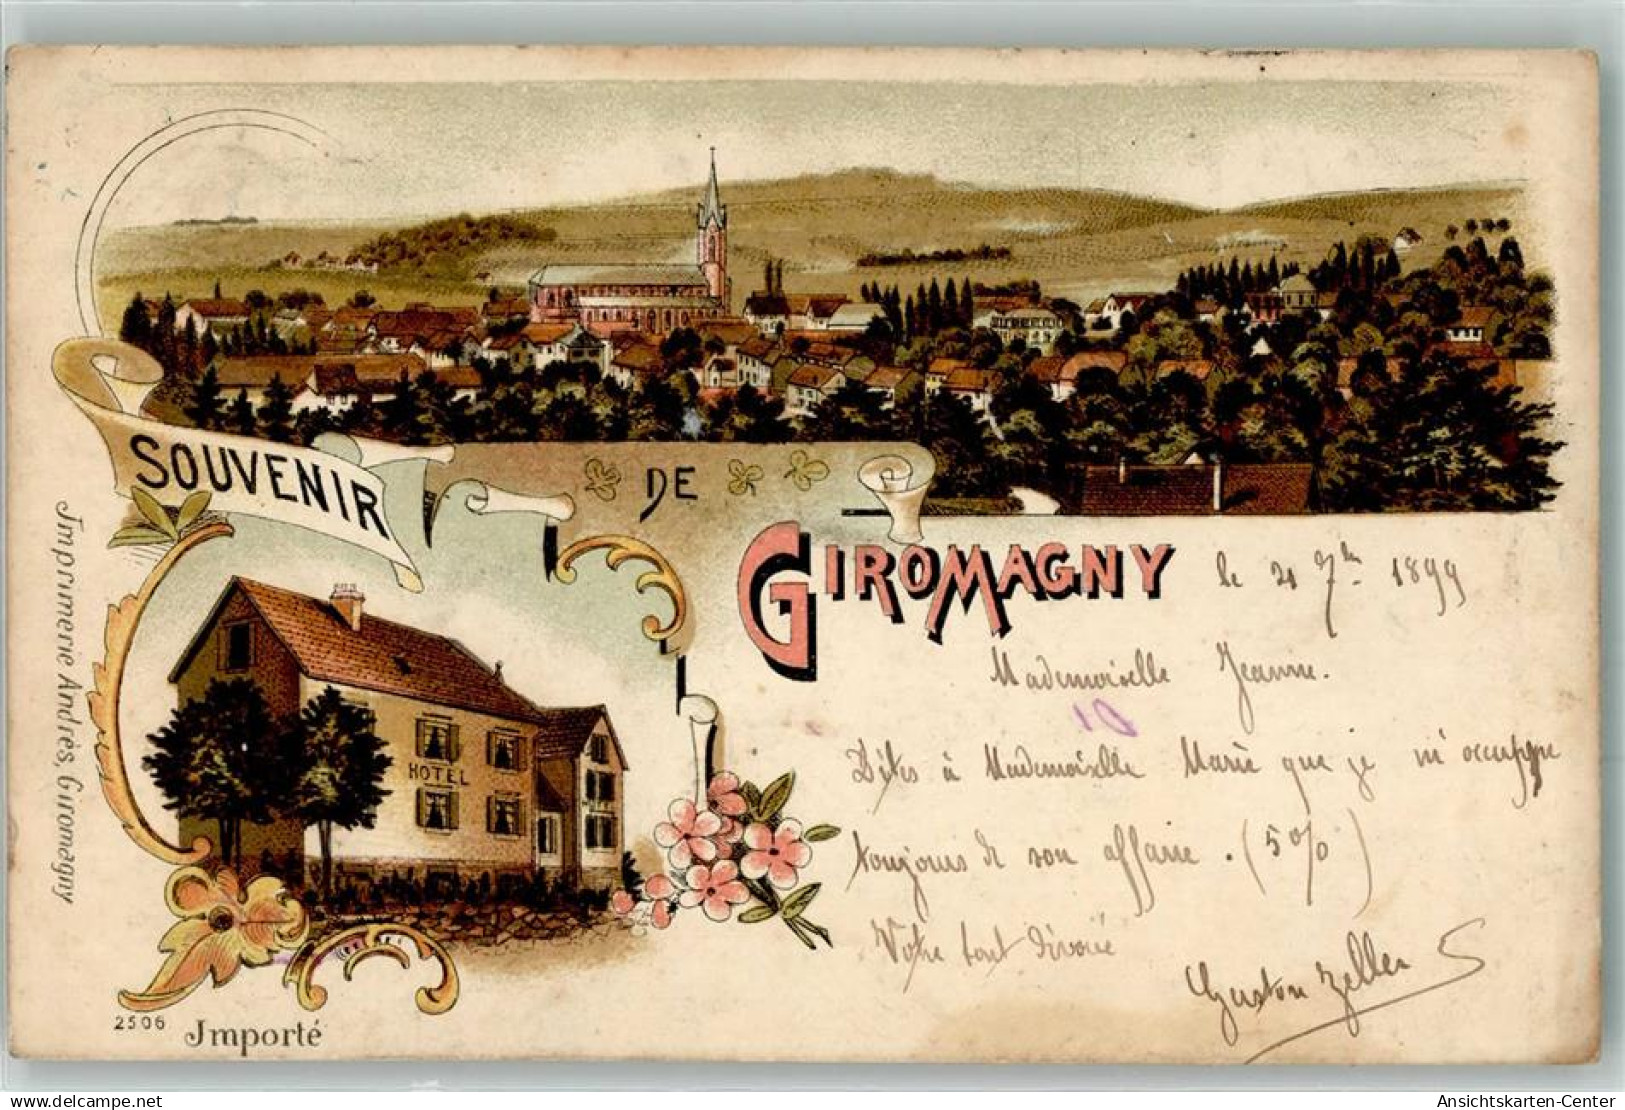 SOUVENIR
DE
GIROMAGNY
le 21 7bre 1899
Mademoiselle Jeanne.
Dites à Mademoiselle Marie que je m'occuppe
toujours de son affaire. (5%)
Votre tout dévoué
Gaston Zeller
HOTEL
Imprimerie Andrès, Giromagny
2506
Importé
delcampe.net
Ansichtskarten-Center